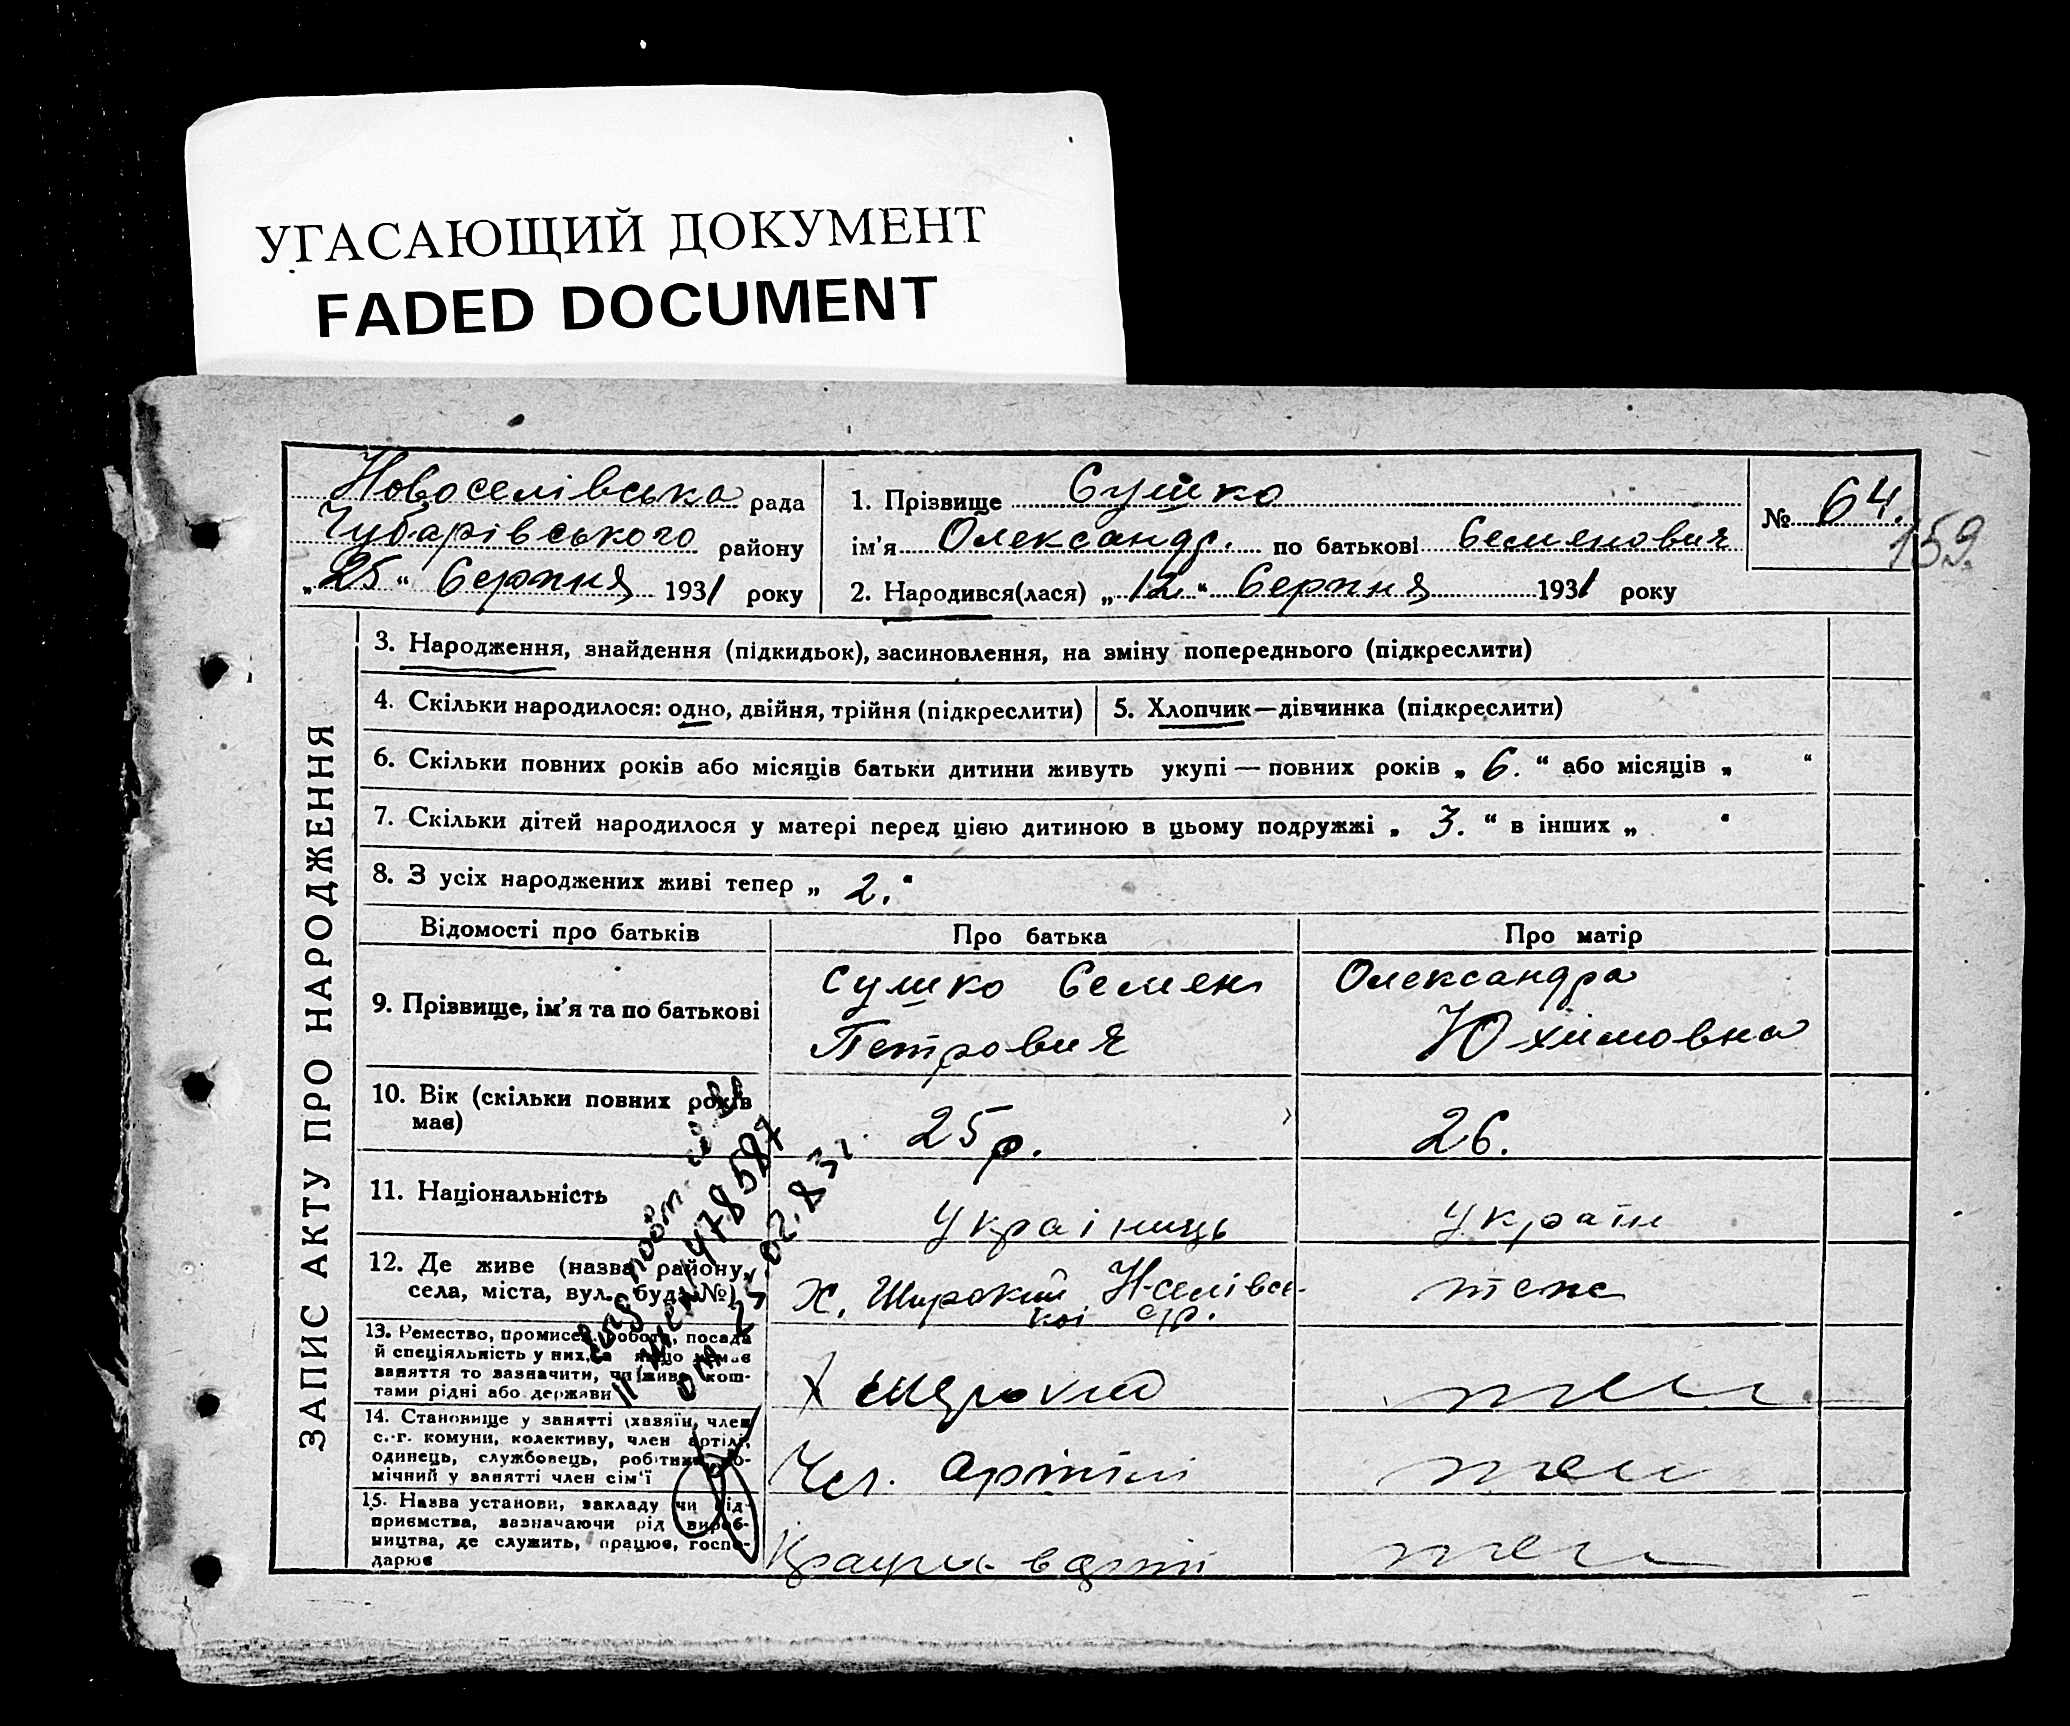 УГАСАЮЩИЙ ДОКУМЕНТ
FADED DOCUMENT
Новоселівська рада
Чубарівського району
„25“ Серпня 1931 року
1. Прізвище Сушко
ім'я Олександр. по батькові Семенович
2. Народився(лася) „12“ Серпня 1931 року
№ 64.
159.
ЗАПИС АКТУ ПРО НАРОДЖЕННЯ
3. Народження, знайдення (підкидьок), засиновлення, на зміну попереднього (підкреслити)
4. Скільки народилося: одно, двійня, трійня (підкреслити)
5. Хлопчик—дівчинка (підкреслити)
6. Скільки повних років або місяців батьки дитини живуть укупі — повних років „ 6. “ або місяців „ “
7. Скільки дітей народилося у матері перед цією дитиною в цьому подружжі „ 3. “ в інших „ “
8. З усіх народжених живі тепер „ 2. “
Відомості про батьків
Про батька
Про матір
9. Прізвище, ім'я та по батькові
Сушко Семен
Петрович
Олександра
Юхимовна
10. Вік (скільки повних років
має)
25 р.
26.
11. Національність
Украінець
Україн
12. Де живе (назва району,
села, міста, вул., буд. №)
Х. Широкий Н-селівсь-
кої с/р.
теж
13. Ремество, промисел, робота, посада
й спеціяльність у них, а якщо немає
заняття то зазначити, чиїми живе кош-
тами рідні або держави
теж
14. Становище у занятті (хазяїн, член
с.-г. комуни, колективу, член артілі,
одинець, службовець, робітник, по-
мічний у занятті член сім'ї
Чл. артілі
теж
15. Назва установи, закладу чи під-
приємства, зазначаючи рід вироб-
ництва, де служить, працює, госпо-
дарює
теж
478587
от 25.02.83г.